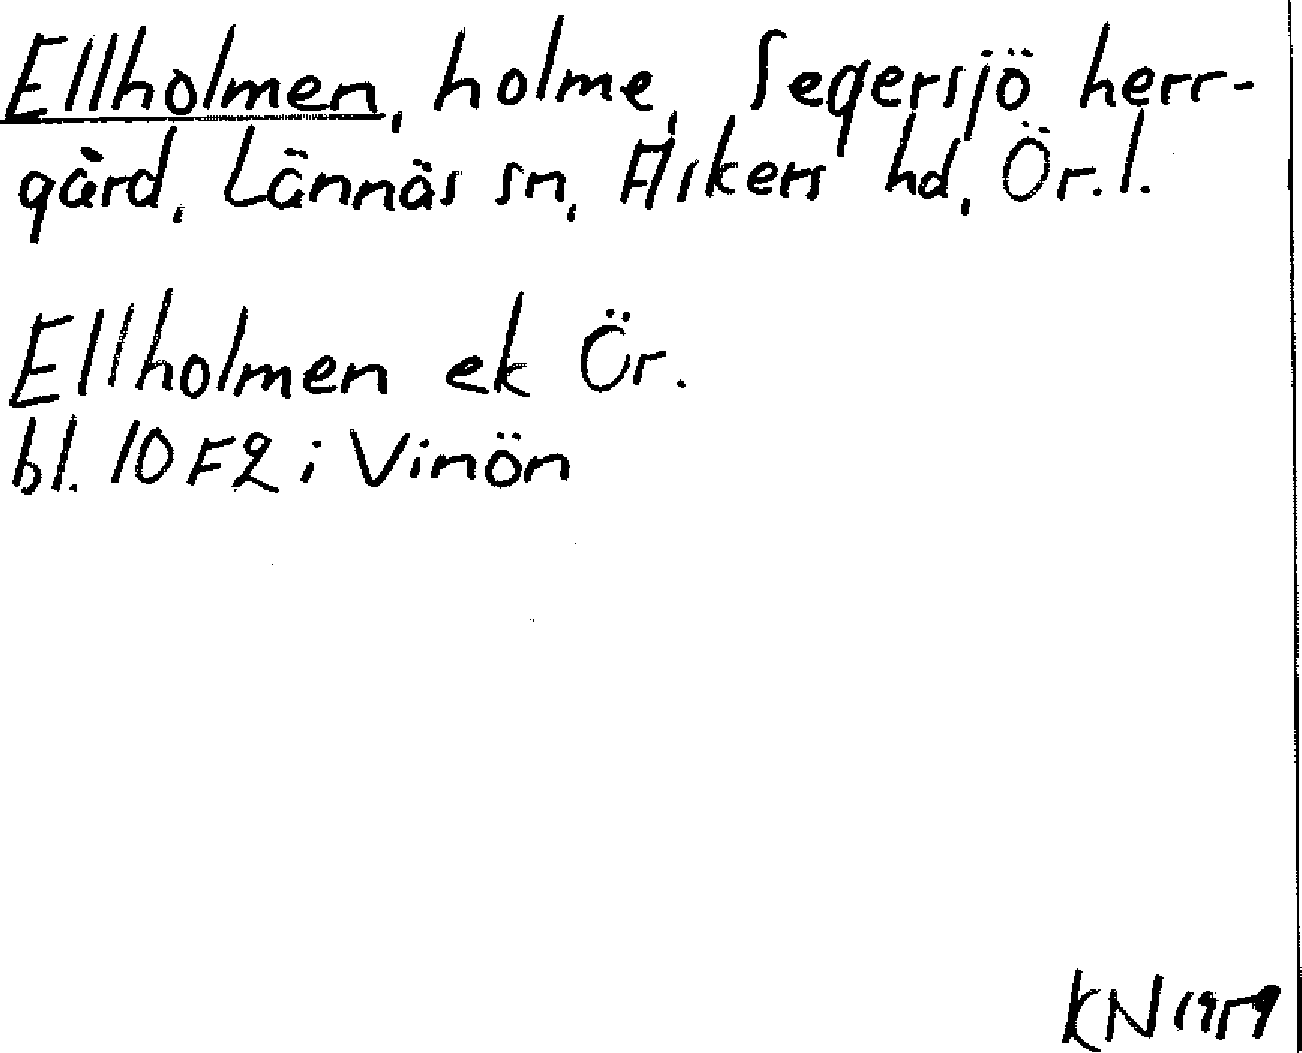 Ellholmen, holme, Segersjö herr-
gård, Lännäs sn, Askers hd, Ör. l.
Ellholmen ek Ör.
bl. 10 F2 i Vinön
KN 1959